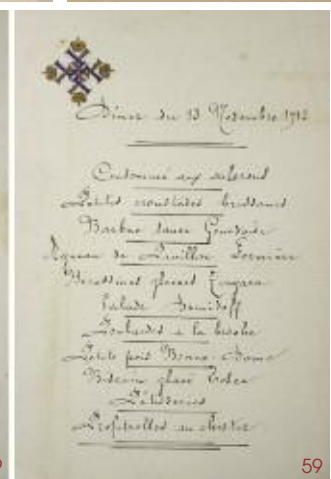 Dîner du 13 Novembre 1912
Consommé aux
Petites croustades
Barbue sauce
Agneau de Pauillac Fermière
Bécassines glacées Zingara
Salade Demidoff
Poulardes à la broche
Petits pois Bonne-Dame
Biscuit glacé Tosca
Pâtisseries
Profiterolles au chester
59